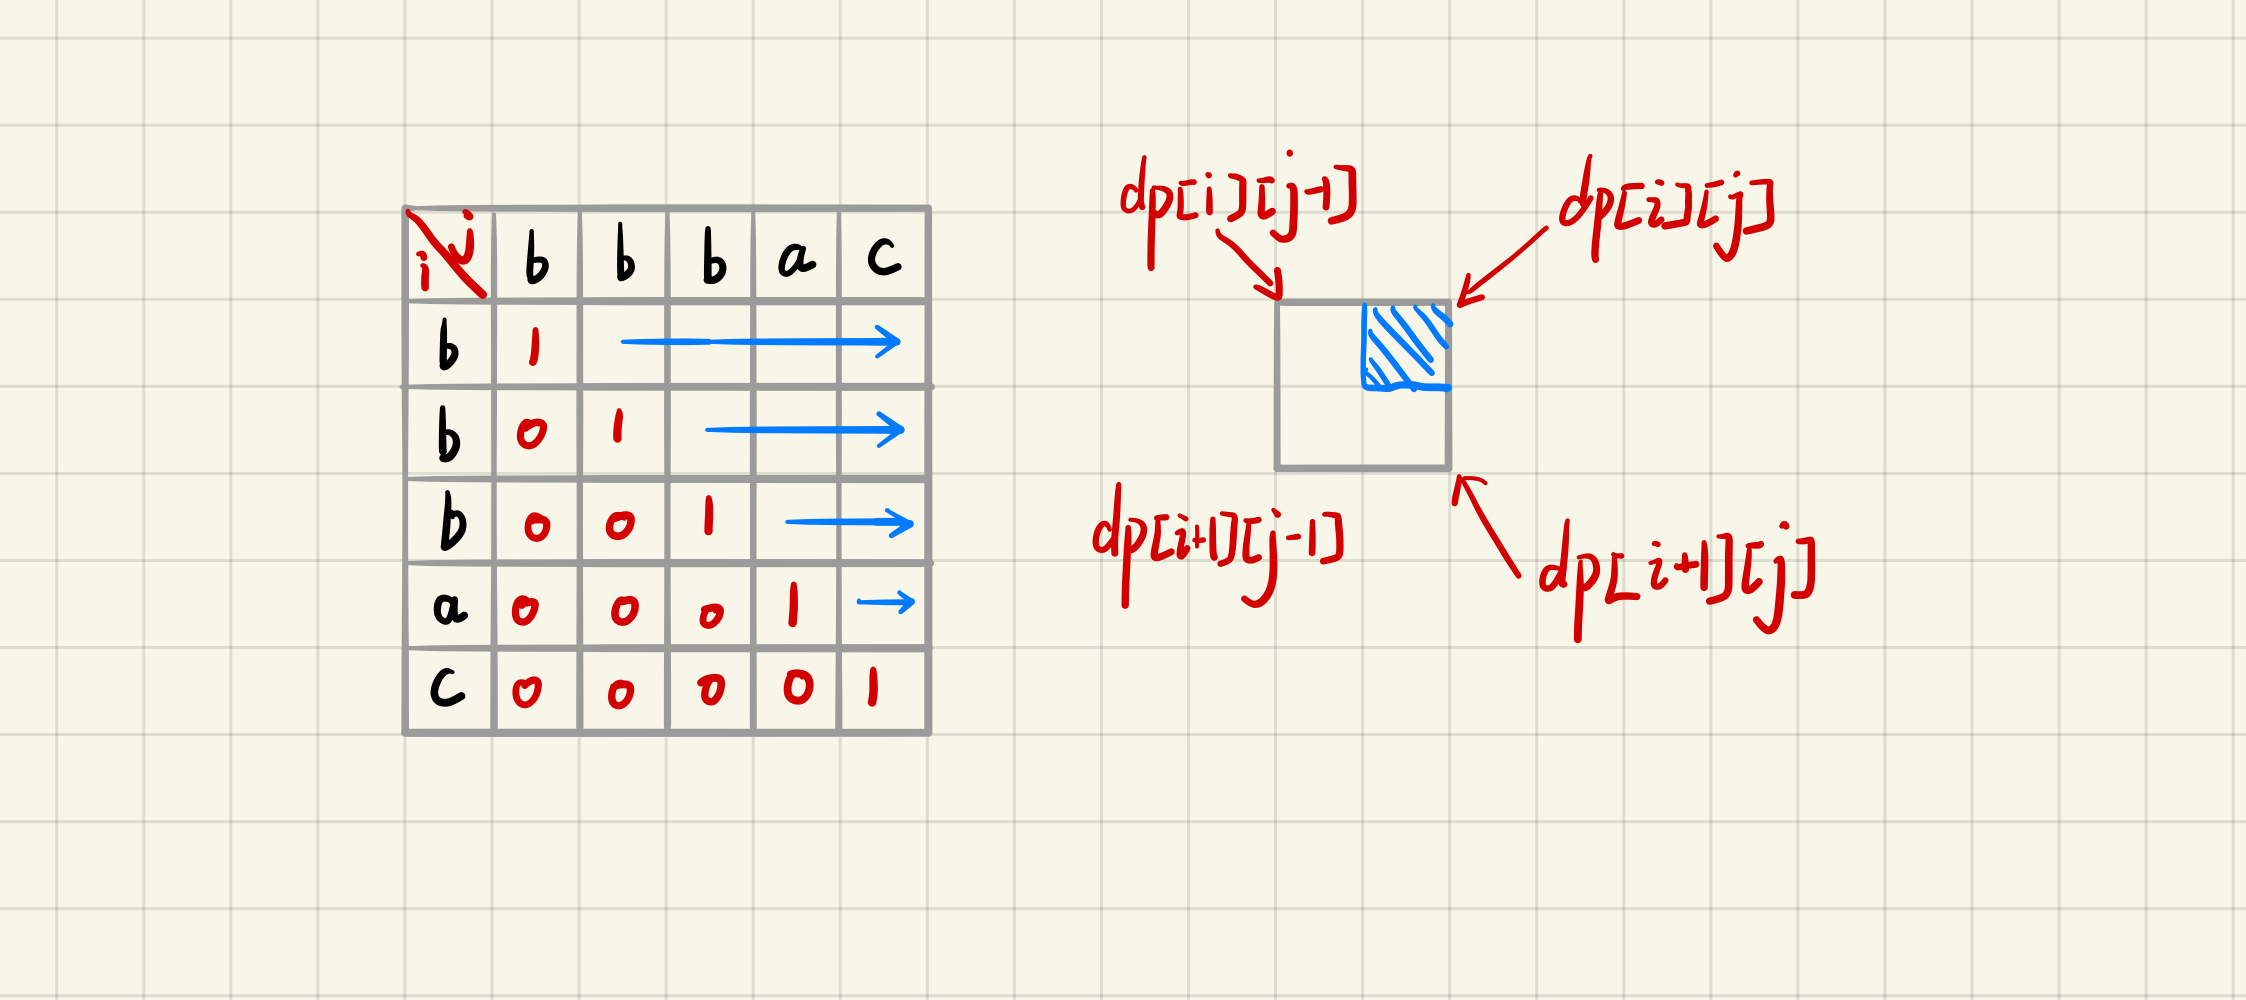 i j b b b a c
b 1
b 0 1
b 0 0 1
a 0 0 0 1
c 0 0 0 0 1
dp[i][j-1]
dp[i][j]
dp[i+1][j-1]
dp[i+1][j]